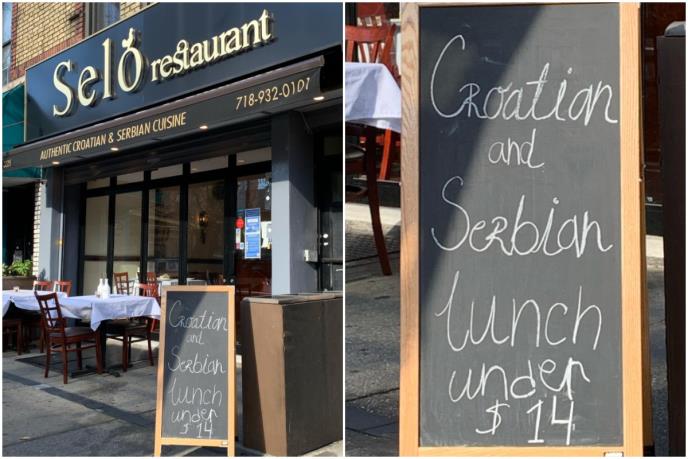 Selo restaurant
718-932-0101
AUTHENTIC CROATIAN & SERBIAN CUISINE
Croatian
and
Serbian
lunch
under
$ 14
Croatian
and
Serbian
lunch
under
$ 14